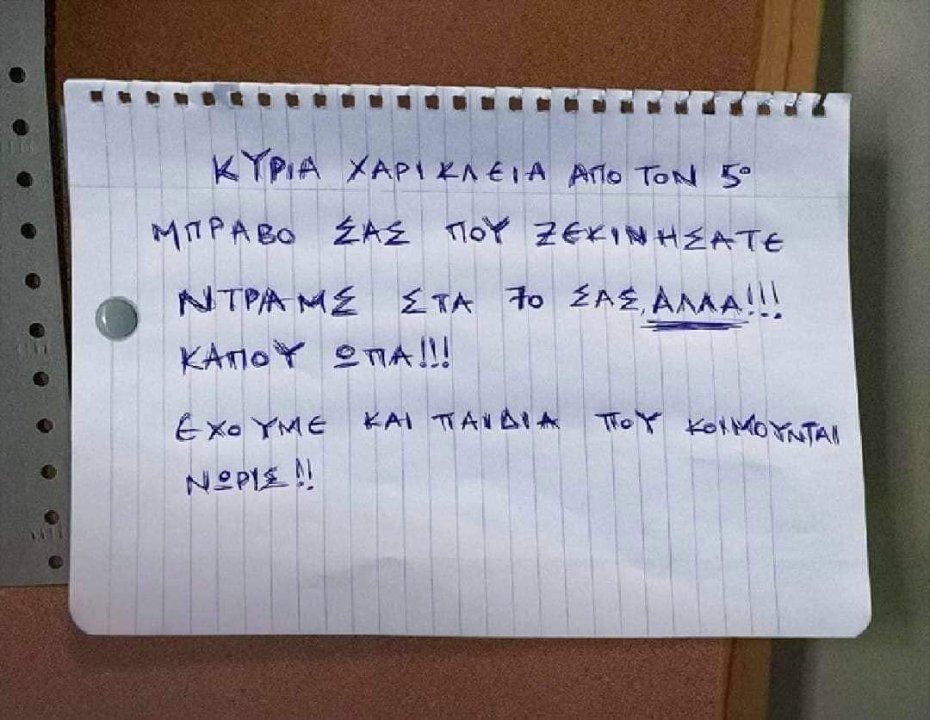 ΚΥΡΙΑ ΧΑΡΙΚΛΕΙΑ ΑΠΟ ΤΟΝ 5º
ΜΠΡΑΒΟ ΣΑΣ ΠΟΥ ΞΕΚΙΝΗΣΑΤΕ
ΝΤΡΑΜΣ ΣΤΑ 70 ΣΑΣ, ΑΛΛΑ!!!
ΚΑΠΟΥ ΩΠΑ!!!
ΕΧΟΥΜΕ ΚΑΙ ΠΑΙΔΙΑ ΠΟΥ ΚΟΙΜΟΥΝΤΑΙ
ΝΩΡΙΣ!!